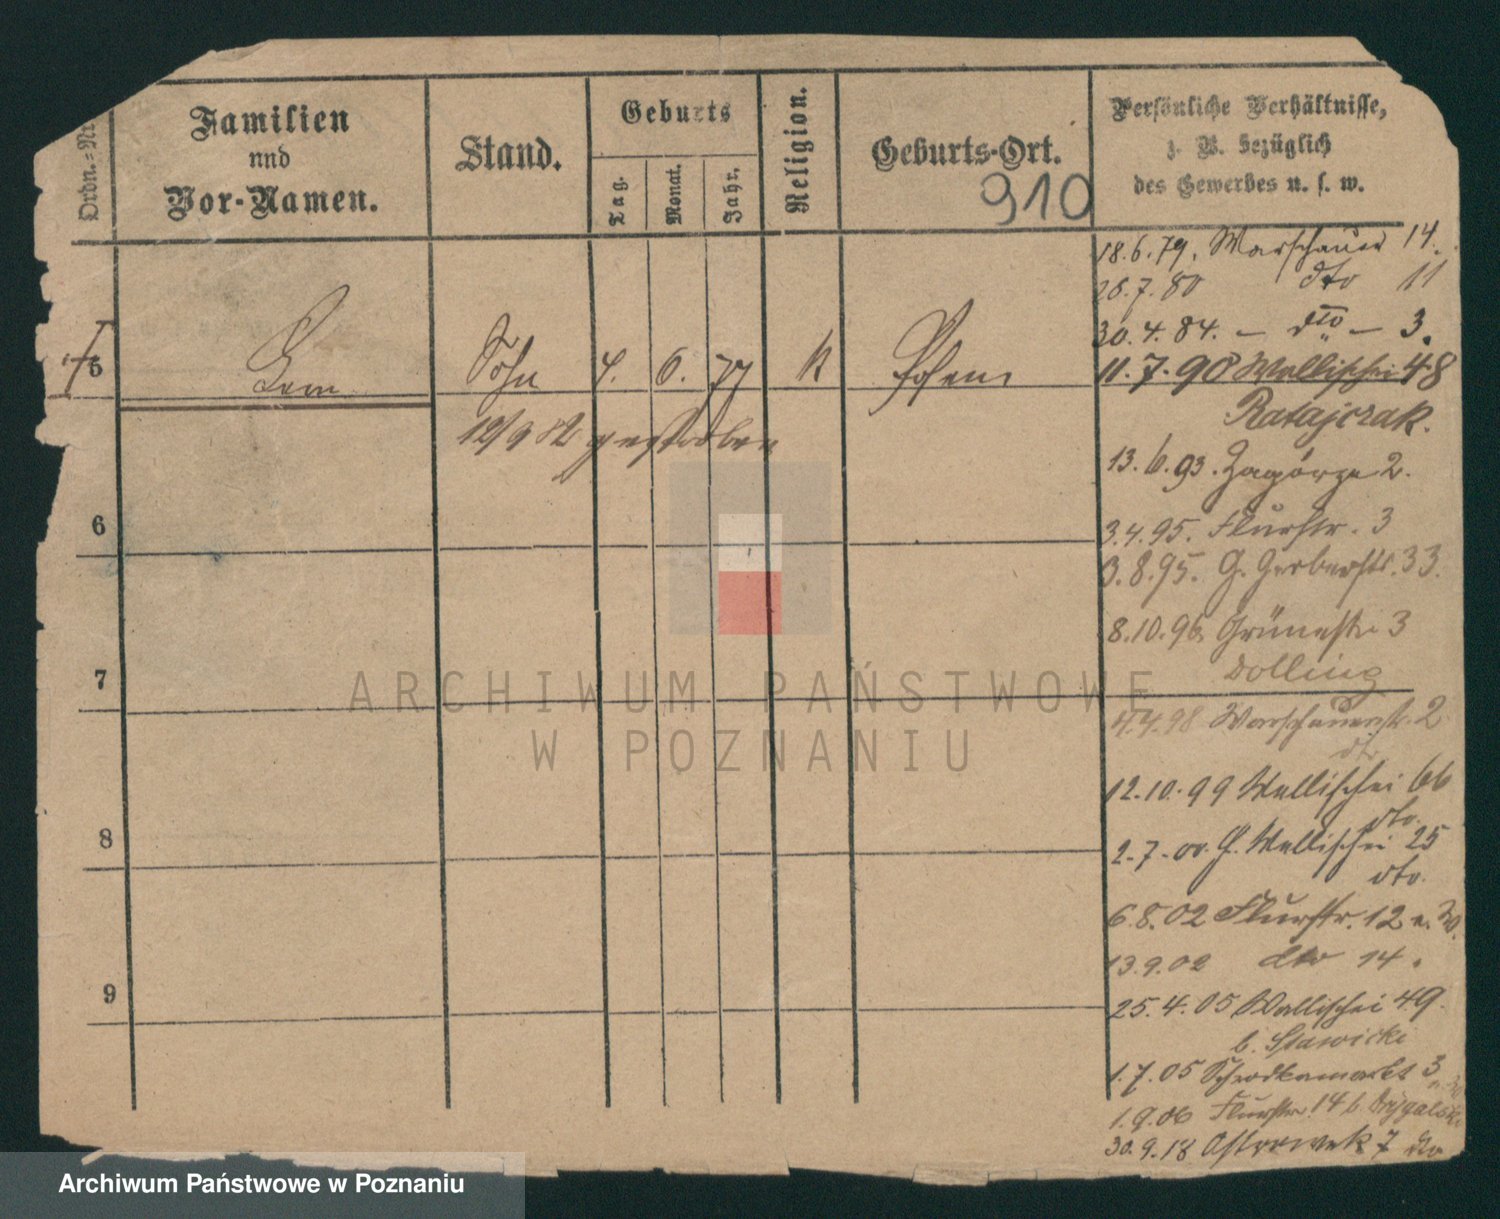 Ordn.-Nr.
Familien
und
Vor-Namen.
Stand.
Geburts
Tag.
Monat.
Jahr.
Religion.
Geburts-Ort.
910
Persönliche Verhältnisse,
z. B. bezüglich
des Gewerbes u. s. w.
5 Sohn 4. 6. 77 k Posen
12/9 82 gestorben
6
7
8
9
18.6.79. Warschauer 14.
26.7.80 dto 11
30.4.84. — dto — 3.
11.7.90 Wallischei 48
Ratajczak.
13.6.93. Zagórze 2.
3.4.95. Flurstr. 3
3.8.95. G. Gerberstr. 33.
8.10.96. Grünestr 3
Dolling
4.4.98 Warschauerstr. 2
dto
12.10.99 Wallischei 66
dto.
2.7.00. Wallischei 25
dto.
6.8.02 Flurstr. 12
13.9.02 dto 14.
25.4.05 Wallischei 49.
b. Stawicki
1.7.05 Schrodkamarkt 3
1.9.06 Flurstr. 14 b.
30.9.18 Ostrowek 7 dto
ARCHIWUM PAŃSTWOWE
W POZNANIU
Archiwum Państwowe w Poznaniu